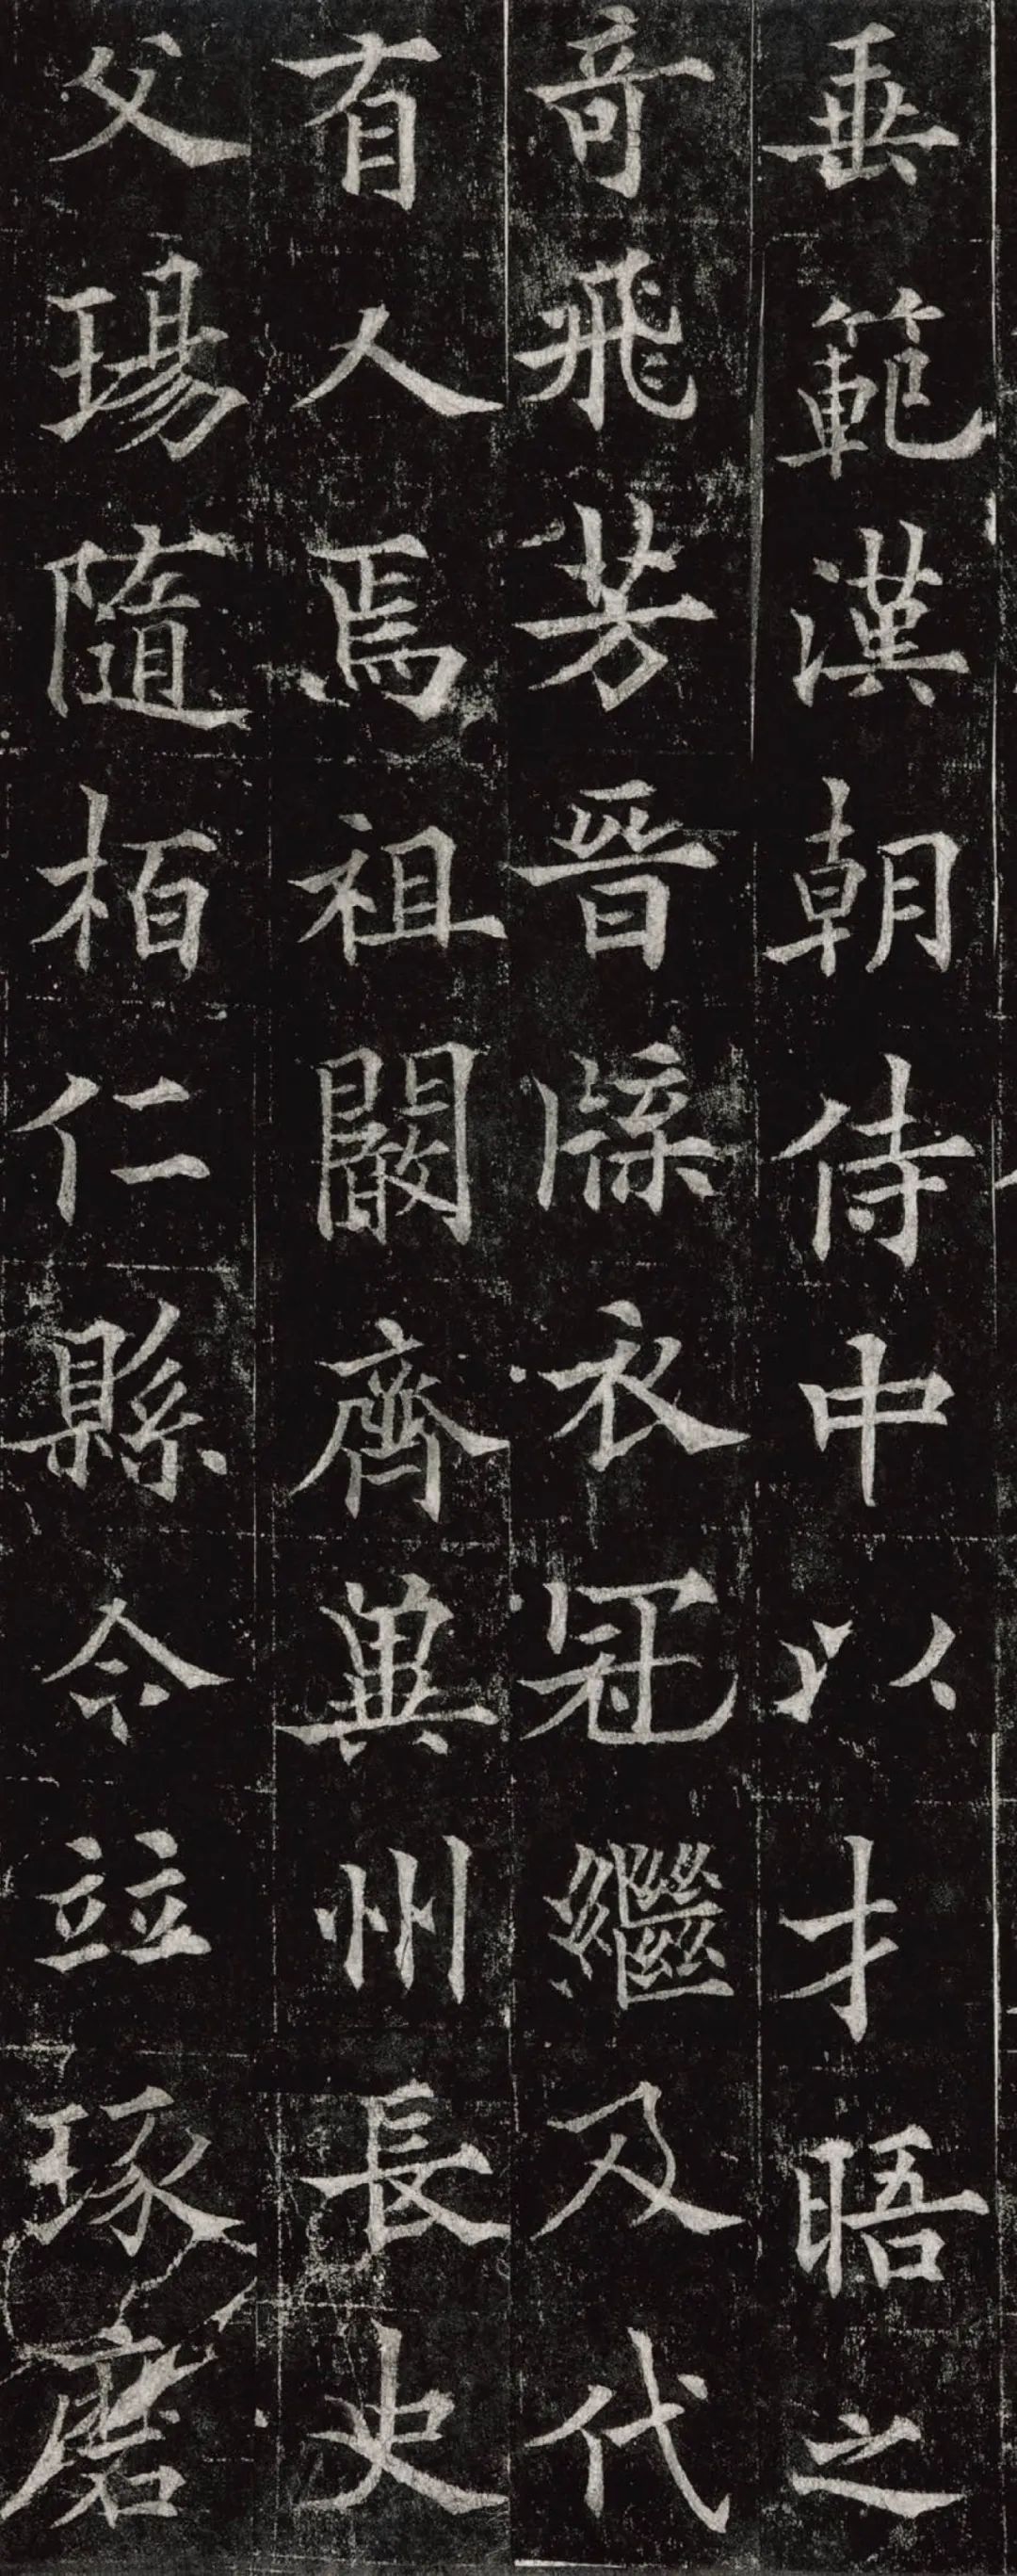 垂範漢朝侍中以才晤之
奇飛芳晉牒衣冠繼及代
有人焉祖闞齊兾州長史
父瑒隨栢仁縣令竝琢磨